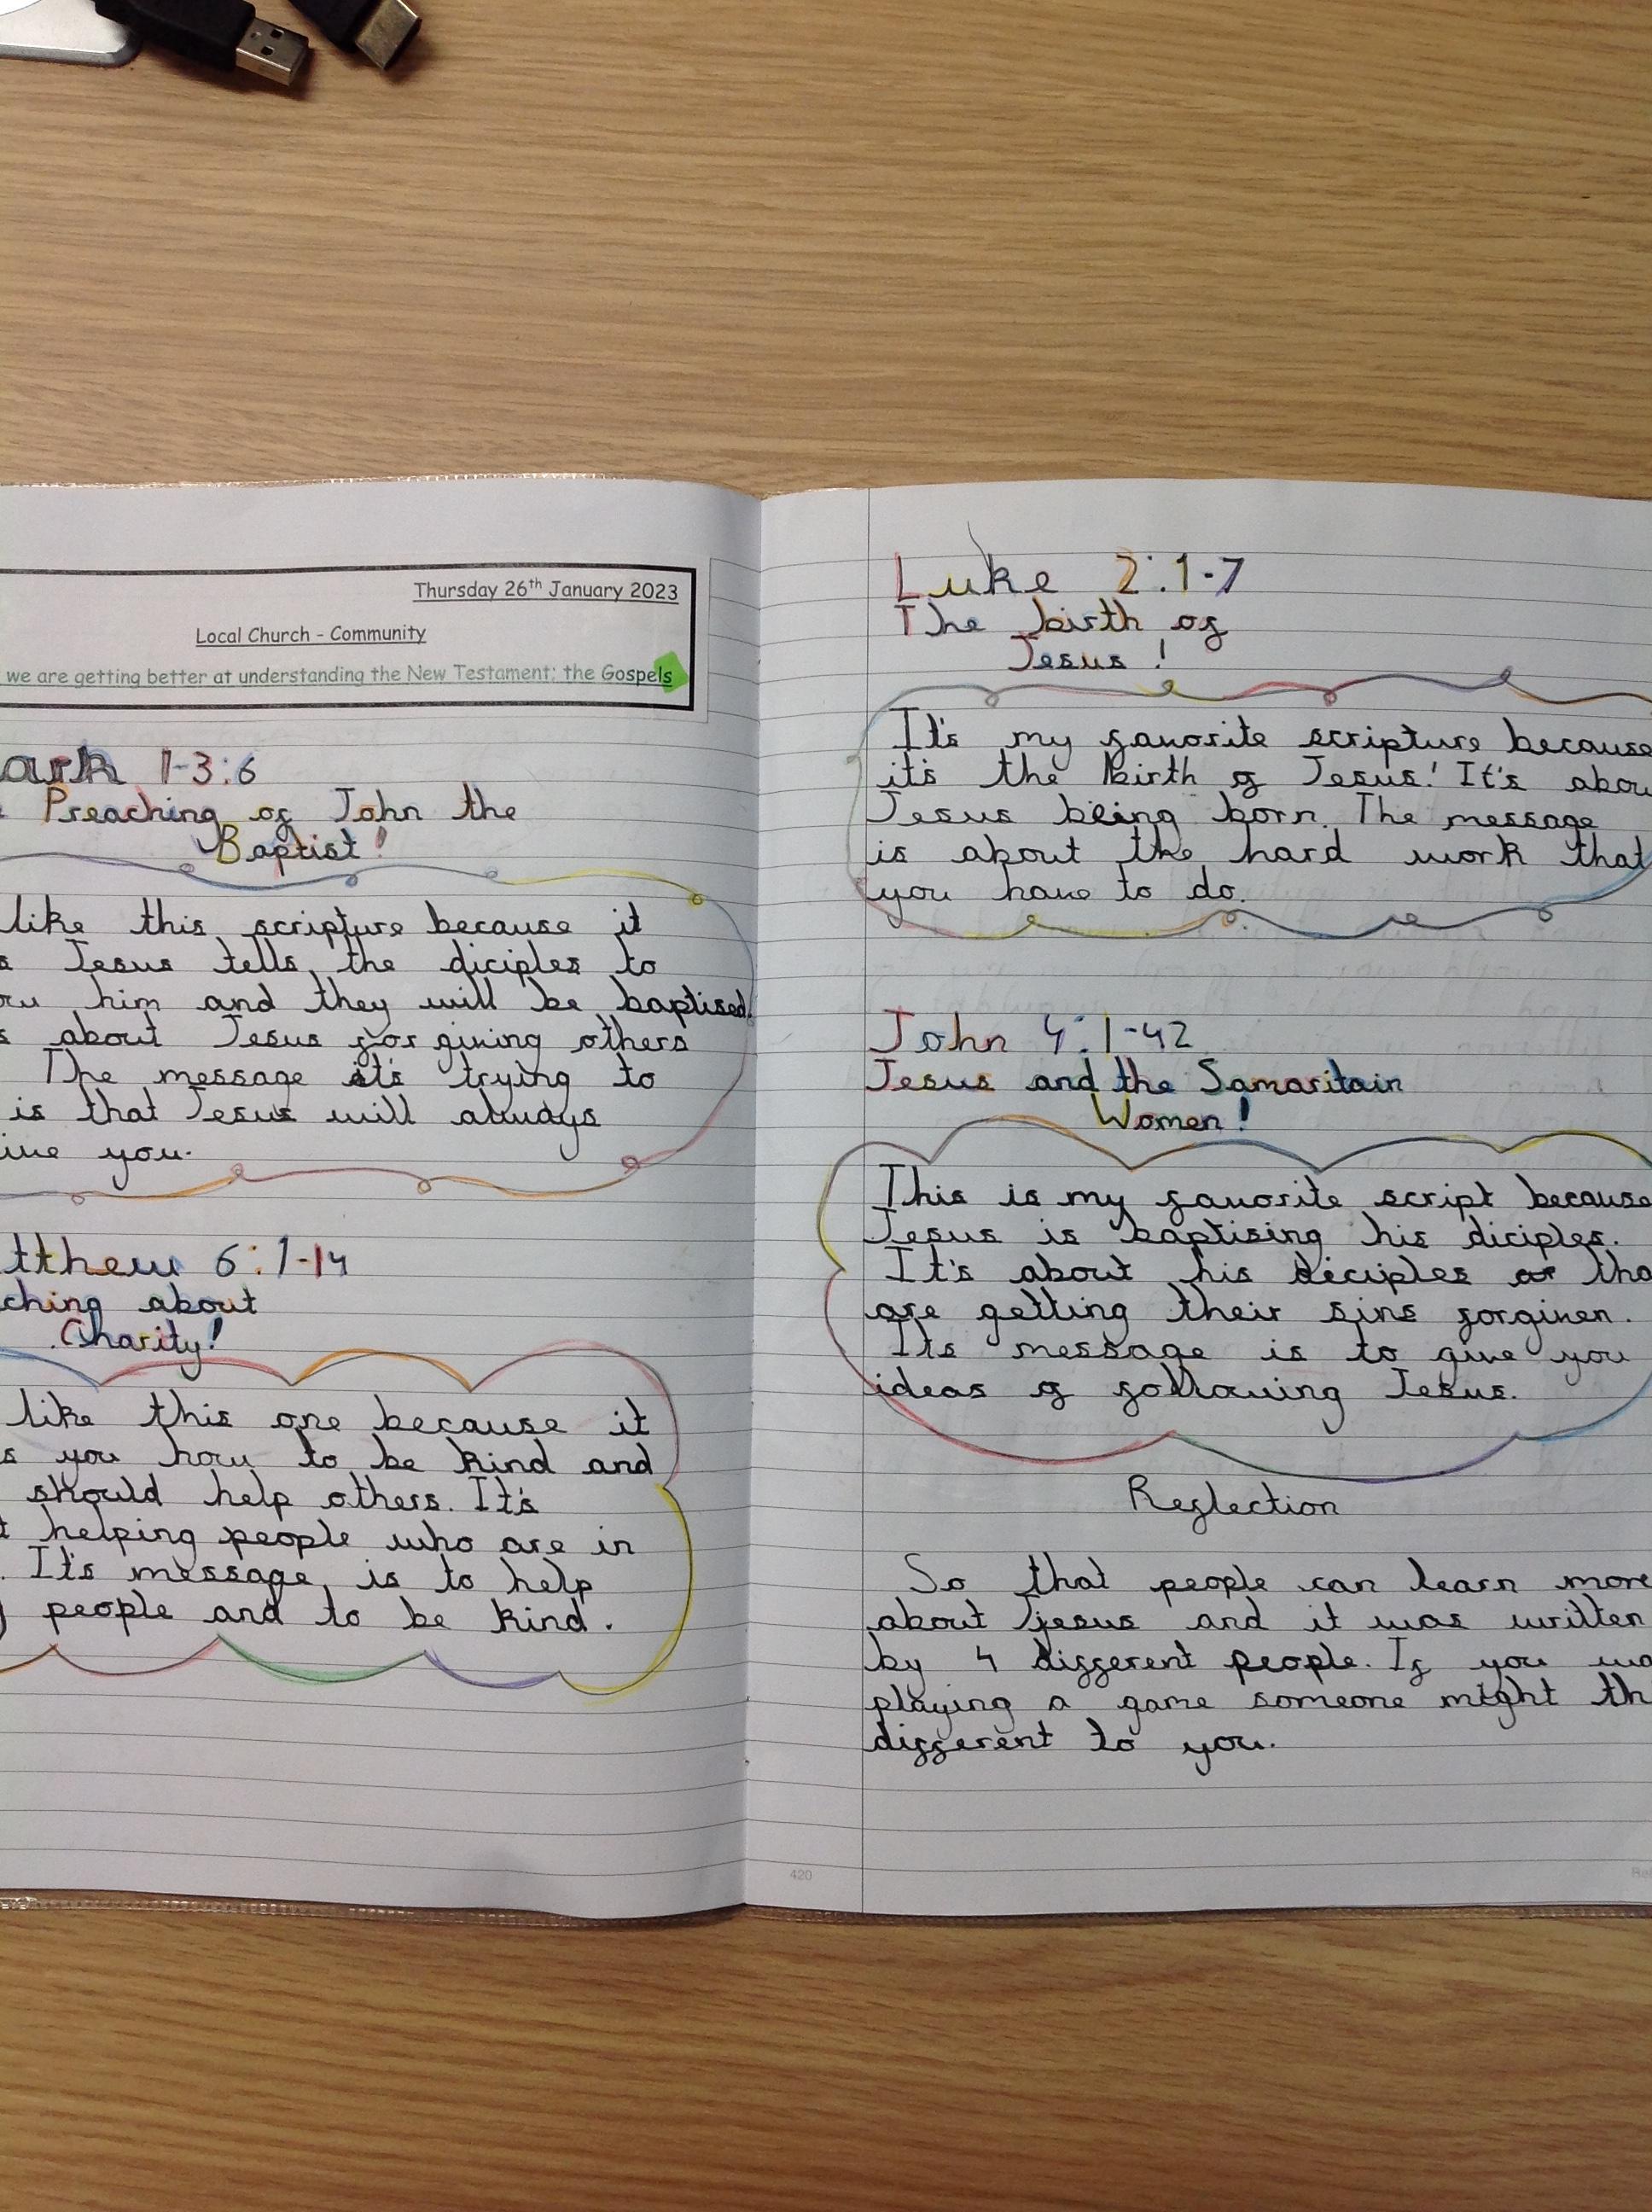 Thursday 26th January 2023
Local Church - Community
we are getting better at understanding the New Testament: the Gospels
ark 1-3:6
Preaching of John the
Baptist!
like this scripture because it
s Jesus tells the diciples to
him and they will be baptised.
s about Jesus for giving others
The message it's trying to
is that Jesus will always
ive you.
tthew 6:1-14
ching about
Charity!
like this one because it
s you how to be kind and
should help others. It's
t helping people who are in
. It's message is to help
people and to be kind.
Luke 2:1-7
The birth of
Jesus!
It's my favorite scripture because
it's the birth of Jesus! It's abou
Jesus being born. The message
is about the hard work that
you have to do.
John 4:1-42
Jesus and the Samaritain
Women!
This is my favorite script because
Jesus is baptising his diciples.
It's about his diciples tha
are getting their sins forgiven.
Its message is to give you
ideas of following Jesus.
Reflection
So that people can learn more
about Jesus and it was written
by 4 different people. If you wa
playing a game someone might th
different to you.
420